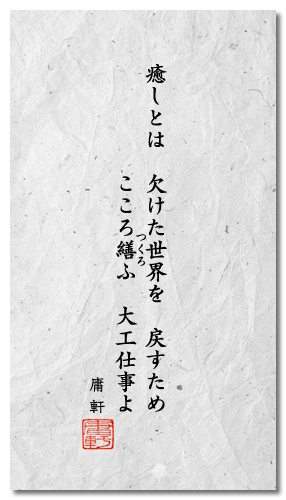 癒しとは　欠けた世界を　戻すため
こころ繕ふ　大工仕事よ
つくろ
庸軒
庸軒